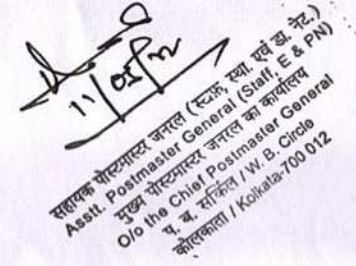 11/05/12
सहायक पोस्टमास्टर जनरल (स्टाफ़, स्था. एवं डा. नेट.)
Asstt. Postmaster General (Staff, E & PN)
मुख्य पोस्टमास्टर जनरल का कार्यालय
O/o the Chief Postmaster General
प. ब. सर्किल / W. B. Circle
कोलकाता / Kolkata-700 012